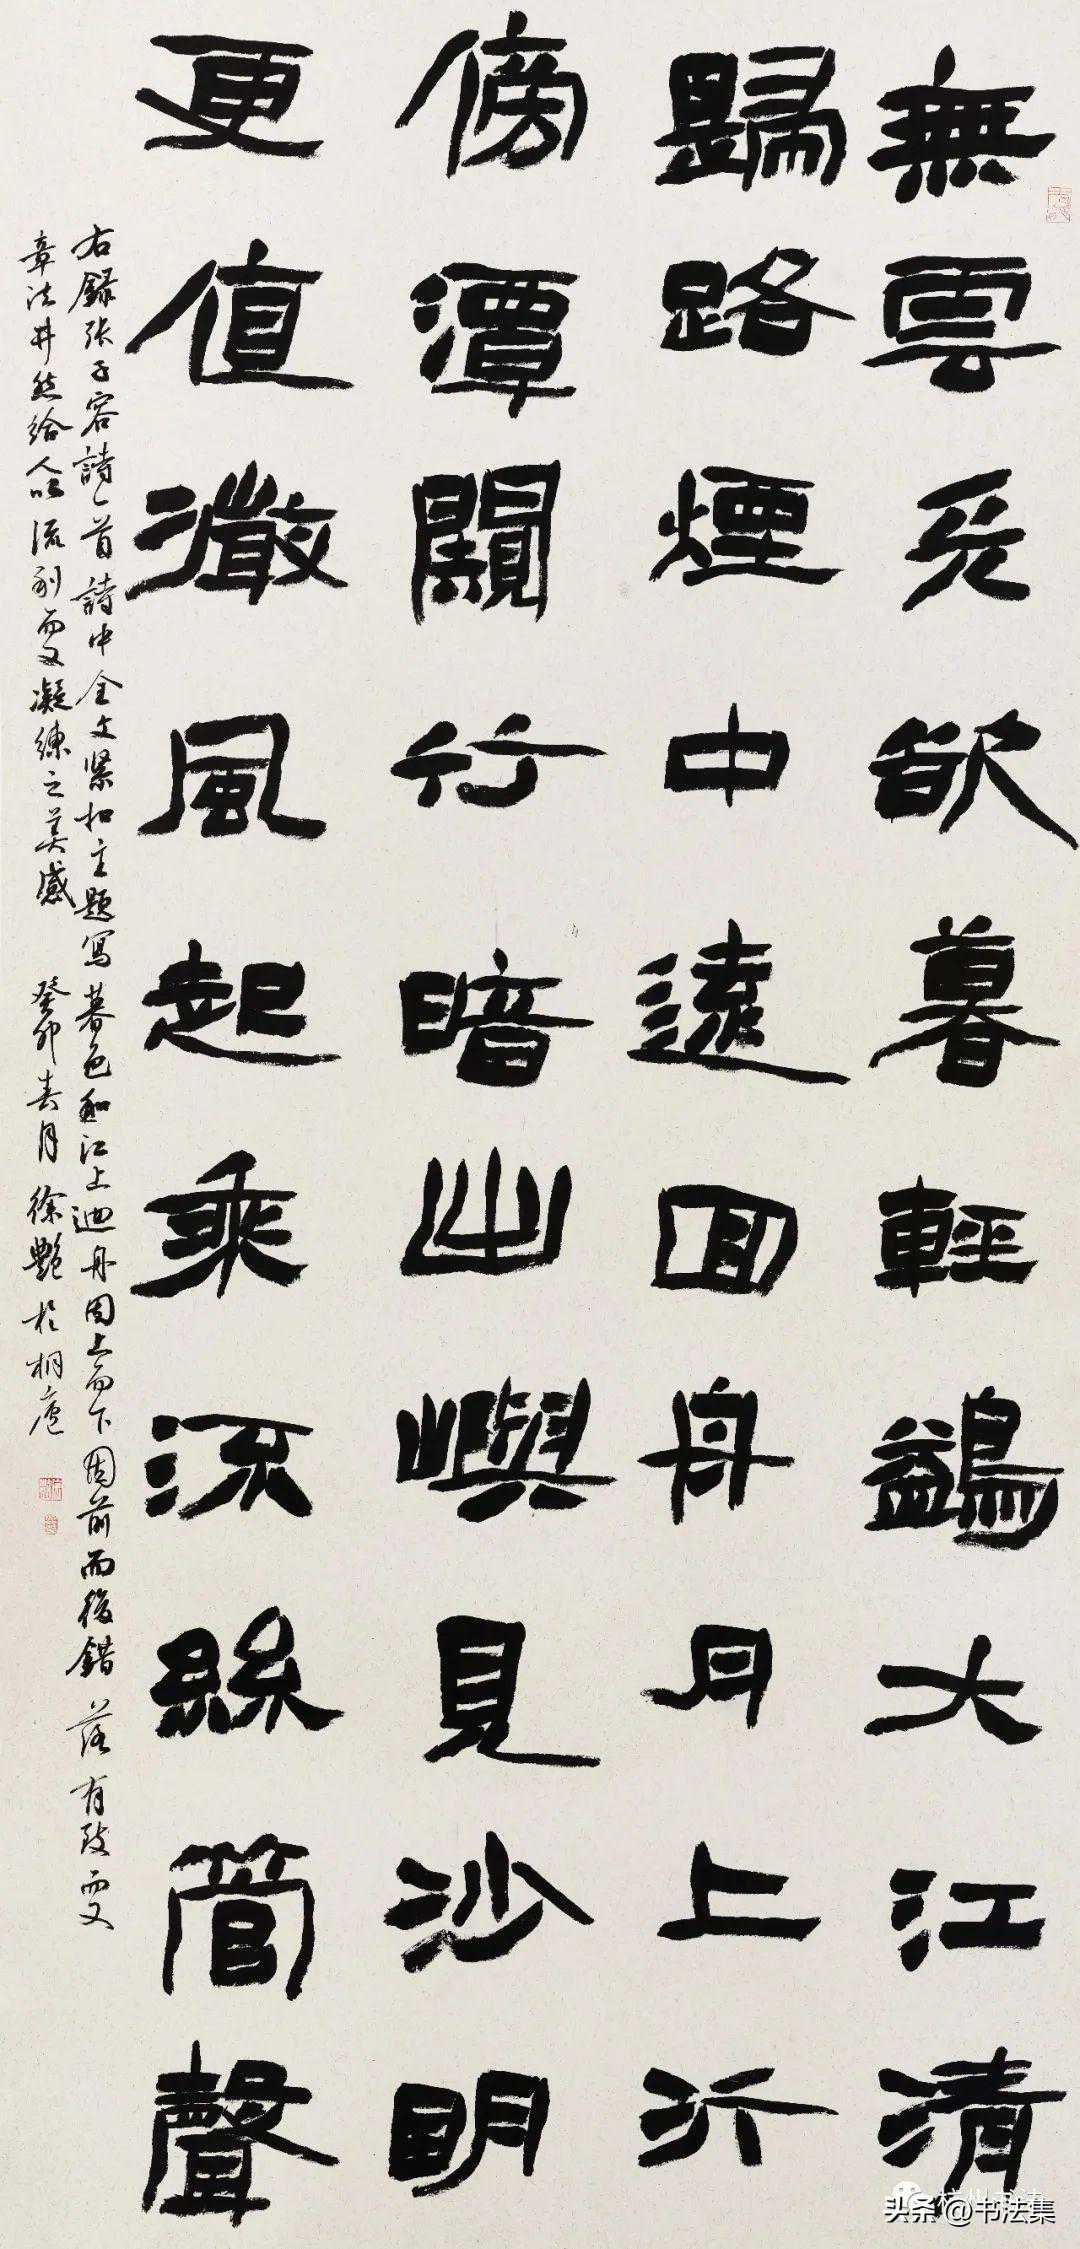 無雲天欲暮輕鷁大江清
歸路煙中遠回舟月上行
傍潭闚竹暗出嶼見沙明
更值微風起乘流絲管聲
右錄张子容詩一首詩中全文紧扣主題写暮色和江上迴舟因上而下因前而後錯落有致而又
章法井然给人以流利而又凝練之美感 癸卯春月徐艷於桐庐
头条 @书法集